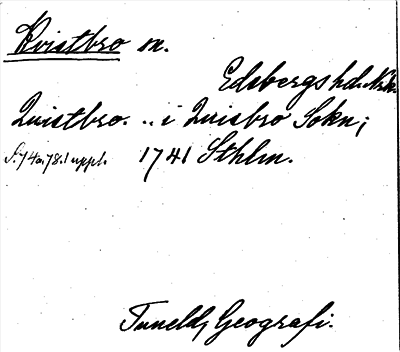 Kvistbro sn.
Edsbergs hd. Nrk.
Quistbro. .. i Quisbro Sokn;
S. 74 a. 78. 1 uppl. 1741 Sthlm.
Tuneld, Geografi.